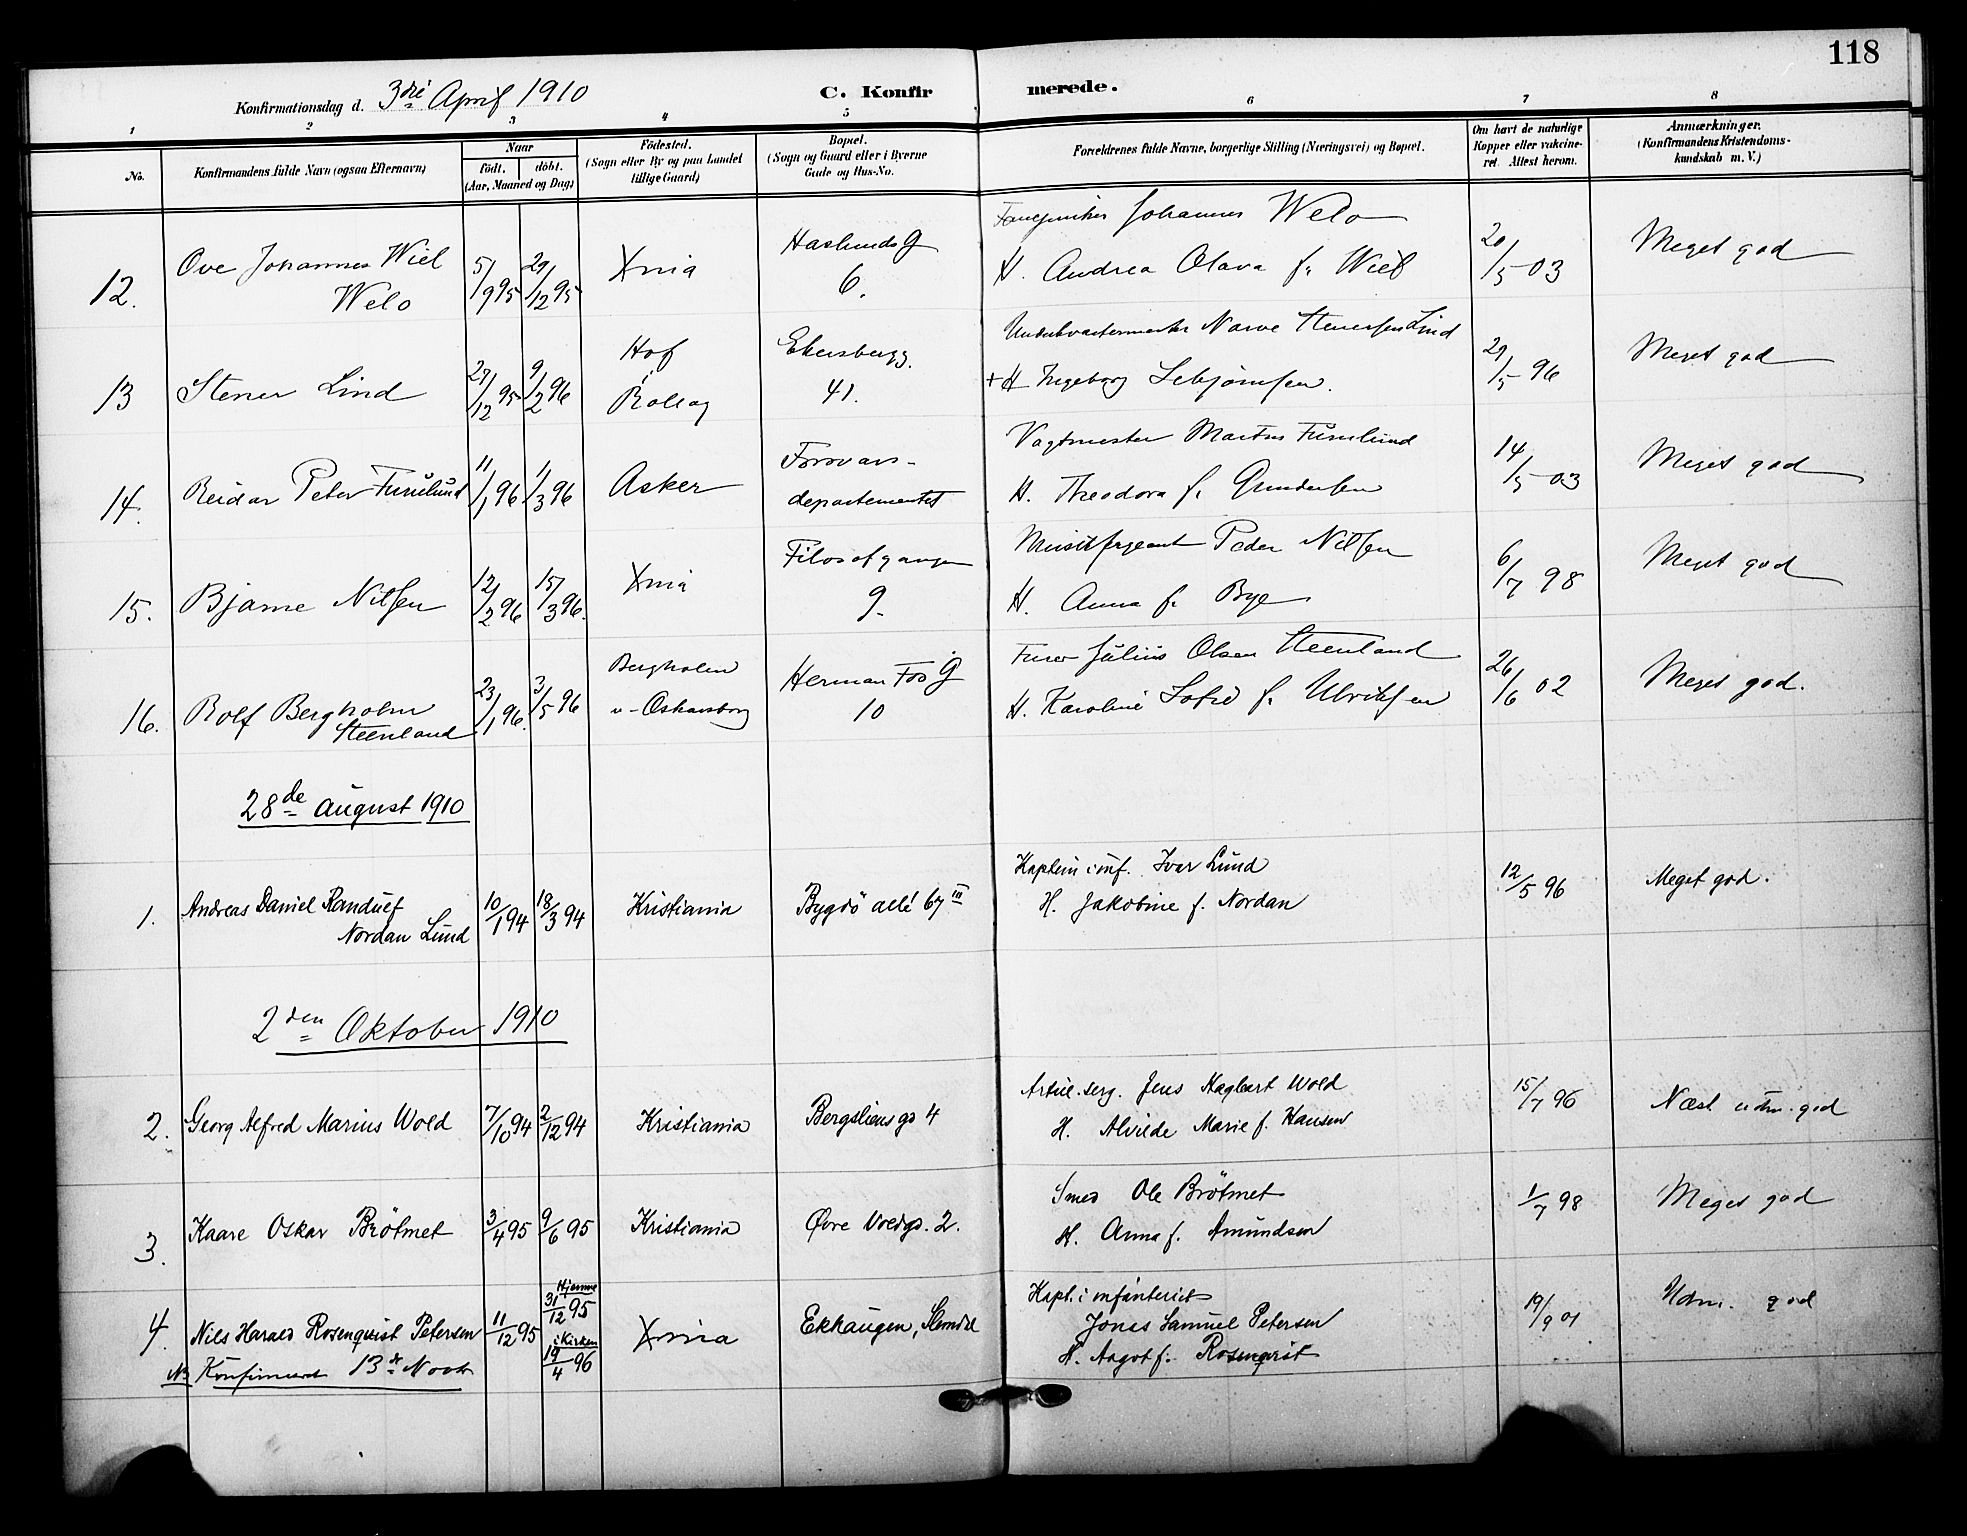 118
Konfirmationsdag d. 3die April 1910
C. Konfirmerede.
1 2 3 4 5 6 7 8
No.
Konfirmandens fulde Navn (ogsaa Efternavn)
Naar
födt. döbt.
(Aar, Maaned og Dag)
Födested.
(Sogn eller By og paa Landet
tillige Gaard)
Bopæl.
(Sogn og Gaard eller i Byerne
Gade og Hus-No.
Forældrenes fulde Navne, borgerlige Stilling (Næringsvei) og Bopæl.
Om havt de naturlige
Kopper eller vaccine-
ret. Attest herom.
Anmærkninger.
(Konfirmandens Kristendoms-
kundskab m. V.)
12. Ove Johannes Wiel
Welo
5/9 95 29/12 95 Xnia
Haslunds G
6.
Johannes Welo
H. Andrea Olava f. Wiel
20/5 03 Meget god
13 Stener Lind 29/12 95 9/2 96
Hof
i
Rollag
Ekersbergg.
41.
Underkvartermester Narve Stenersen Lind
+ H Ingeborg
29/5 96 Meget god
14. Reidar Peter Furulund 11/1 96 1/3 96 Asker
Forsvars-
departementet
Vagtmester Martin Furulund
H. Theodora f. Gundersen
14/5 03 Meget god
15. Bjarne Nilsen 12/2 96 15/3 96. Xnia
Filosofgangen
9.
Musiksergeant Peder Nilsen
H. Anna f. Bye
6/7 98 Meget god
16. Rolf Bergholm
Steenland
23/1 96. 3/5 96
Bergholm
v. Oskarsborg
Herman Foss G
10
Furer Julius Olsen Steenland
H. Karoline Sofie f. Ulriksen
26/6 02 Meget god.
28de august 1910
1. Andreas Daniel Randulf
Nordan Lund
10/1 94 18/3 94 Kristiania Bygdö allé 67 III
Kaptein i inf. Ivar Lund
H. Jakobine f. Nordan
12/5 96 Meget god.
2den Oktober 1910
2. Georg Alfred Marius Wold 7/10 94 2/12 94 Kristiania Bergsliens gd 4
Artil. serg. Jens Hagbart Wold
H. Alvilde Marie f. Hansen
15/7 96 Næst udm. god
3. Kaare Oskar Bråtmet 3/4 95 9/6 95 Kristiania Øvre Voldgd. 2.
Smed Ole Bråtmet
H. Anna f. Amundsen
1/7 98 Meget god
4. Nils Harald Rosenqvist Petersen 11/12 95
Hjemme
31/12 95
i Kirken
19/4 96
Xnia Ekhaugen, Slemdal
Kapt. i infanteriet
Jonas Samuel Petersen
H. Aagot f. Rosenqvist
19/9 01 Udm. god
NB Konfirmeret 13de Novbr